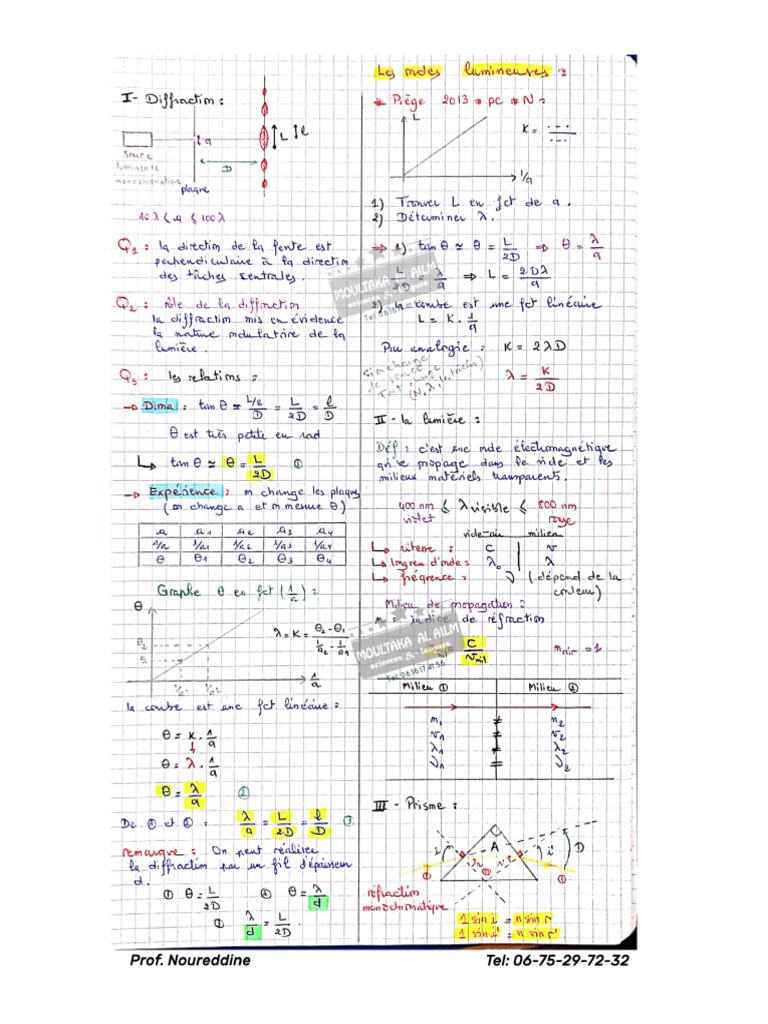 Les ondes lumineuses :
I- Diffraction :
a
L
l
D
Source
lumineuse
monochromatique
plaque
10 λ < a < 100 λ
Q1 : la direction de la fente est
perpendiculaire à la direction
des tâches centrales.
Q2 : rôle de la diffraction
la diffraction mis en évidence
la nature ondulatoire de la
lumière.
Q3 : les relations :
→ Dima : tan θ = L/2/D = L/2D = l/D
θ est très petite en rad
↳ tan θ ≃ θ = L/2D ①
→ Expérience : on change les plaques
(on change a et on mesure θ)
a a1 a2 a3 a4
1/a 1/a1 1/a2 1/a3 1/a4
θ θ1 θ2 θ3 θ4
Graphe θ en fct (1/a) :
θ
θ2
θ1
1/a1 1/a2
1/a
λ = K = θ2 - θ1 / 1/a2 - 1/a1
la courbe est une fct linéaire :
θ = K . 1/a
θ = λ . 1/a
θ = λ/a ②
De ① et ② : λ/a = L/2D = l/D ③
remarque : On peut réaliser
la diffraction par un fil d'épaisseur
d.
① θ = L/2D ② θ = λ/d
③ λ/d = L/2D .
* Piège 2013 * pc * N :
L
1/a
K =
1) Trouver L en fct de a .
2) Déterminer λ .
⇒ 1) tan θ ≃ θ = L/2D ⇒ θ = λ/a
L/2D = λ/a ⇒ L = 2Dλ/a
2) la courbe est une fct linéaire
L = K . 1/a
Par analogie : K = 2λD
λ = K/2D
II - la lumière :
Déf : c'est une onde électromagnétique
qui se propage dans le vide et les
milieux matériels transparents.
400 nm ≤ λ visible ≤ 800 nm
violet rouge
vide-air milieu
↳ vitesse : C v
↳ longueur d'onde : λ0 λ
↳ fréquence : ν (dépend de la
couleur)
Milieu de propagation :
n : indice de réfraction
= C/Vmil
nair = 1
Milieu ① Milieu ②
n1 ≠ n2
v1 ≠ v2
λ1 ≠ λ2
ν1 = ν2
III - Prisme :
A
i
r
r'
i'
D
réfraction
monochromatique
1 sin i = n sin r
1 sin i' = n sin r'
MOULTAKA AL AILM
sciences & langues
MOULTAKA AL AILM
sciences & langues
Prof. Noureddine
Tel: 06-75-29-72-32